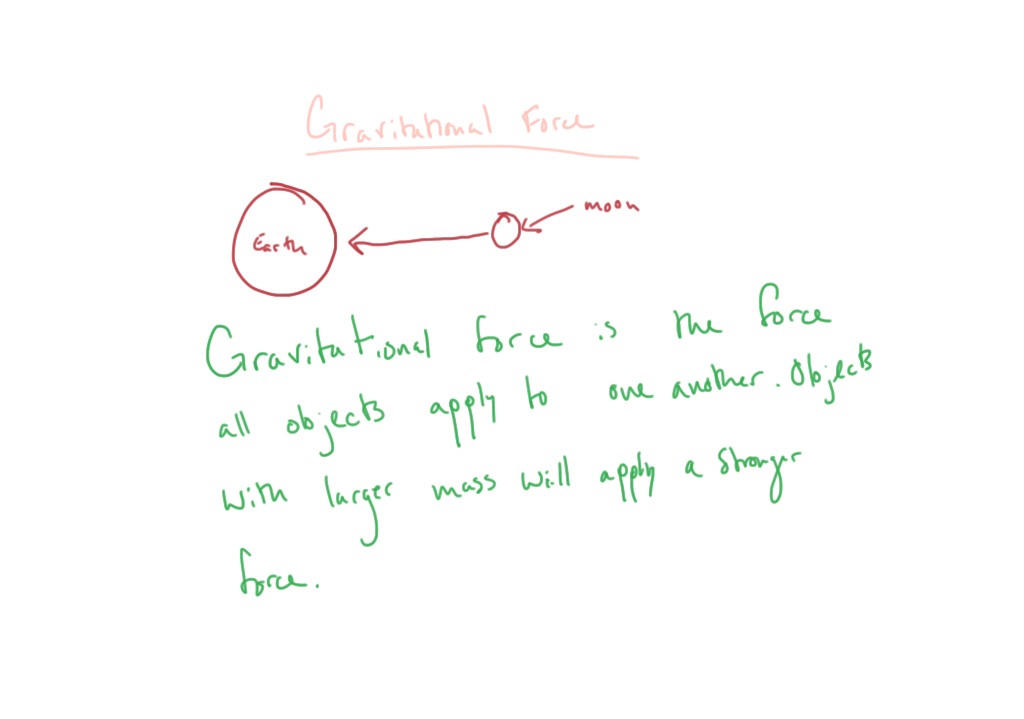 Gravitational Force
Earth
moon
Gravitational force is the force
all objects apply to one another. Objects
with larger mass will apply a stronger
force.